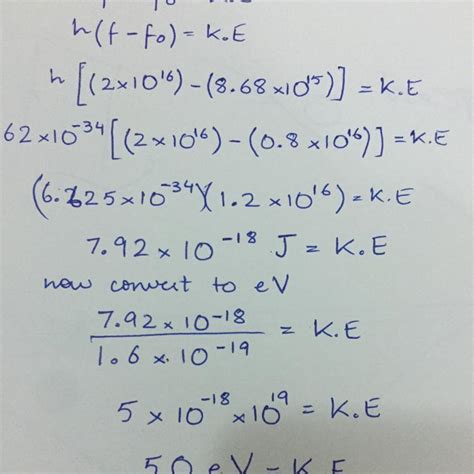 h(f-fo) = K.E
h[(2x10¹⁶)-(8.68x10¹⁵)] = K.E
62x10⁻³⁴[(2x10¹⁶)-(0.8x10¹⁶)] = K.E
(6.625x10⁻³⁴)(1.2x10¹⁶) = K.E
7.92 x 10⁻¹⁸ J = K.E
now convert to eV
7.92 x 10⁻¹⁸
1.6 x 10⁻¹⁹
= K.E
5 x 10⁻¹⁸ x 10¹⁹ = K.E
50 eV = K.E